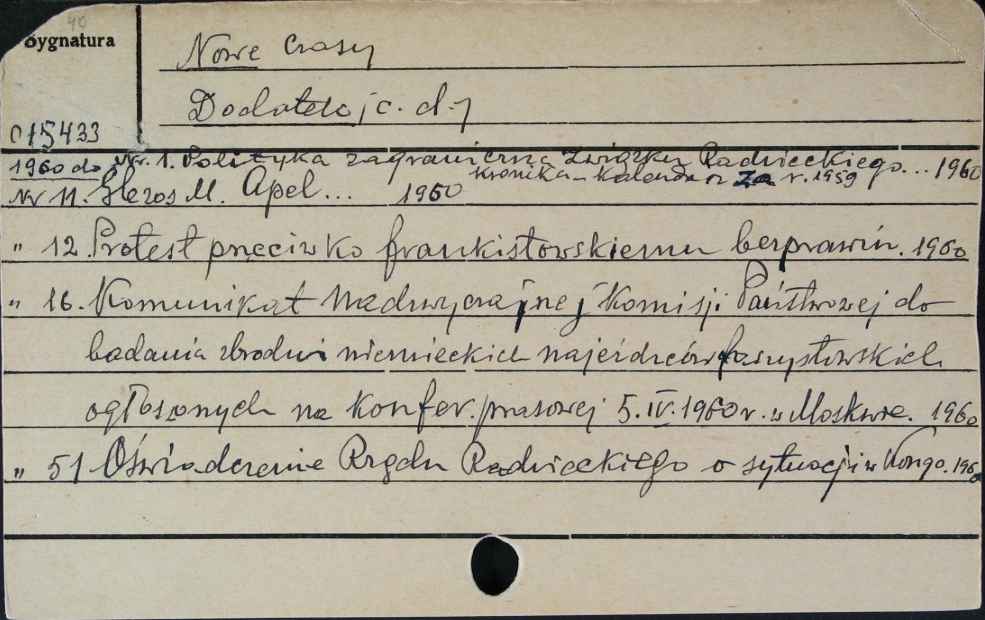 40
Sygnatura
Nowe Czasy
Dodatek /c. d./
015433
1960 do Nr. 1. Polityka zagraniczna Związku Radzieckiego... 1960
Kronika - Kalendarz za r. 1959
Nr 11. Glezos M. Apel... 1960
" 12. Protest przeciwko frankistowskiemu bezprawiu. 1960
" 16. Komunikat Nadzwyczajnej Komisji Państwowej do
badania zbrodni niemieckich najeźdźców faszystowskich
ogłoszonych na konfer. prasowej 5.IV.1960 r. w Moskwie. 1960
" 51 Oświadczenie Rządu Radzieckiego o sytuacji w Kongo. 1960